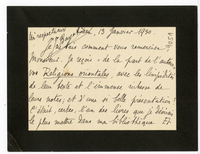 Paris, 13 Janvier 1930.
Je ne sais comment vous remercier
Monsieur. Je reçois de la part de l'auteur
vos Religions orientales avec les limpidités
de leur texte et l'immense richesse de
leurs notes, et d'une si belle présentation
C'était, certes, l'un des livres que je désirais
le plus mettre dans ma bibliothèque. Et